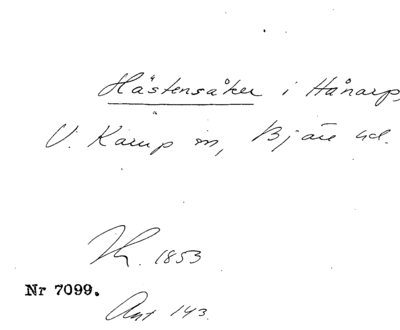 Hästensåker i Hånarp,
V. Karup sn, Bjäre hd.
Th. 1853
Nr 7099.
Ant 143.